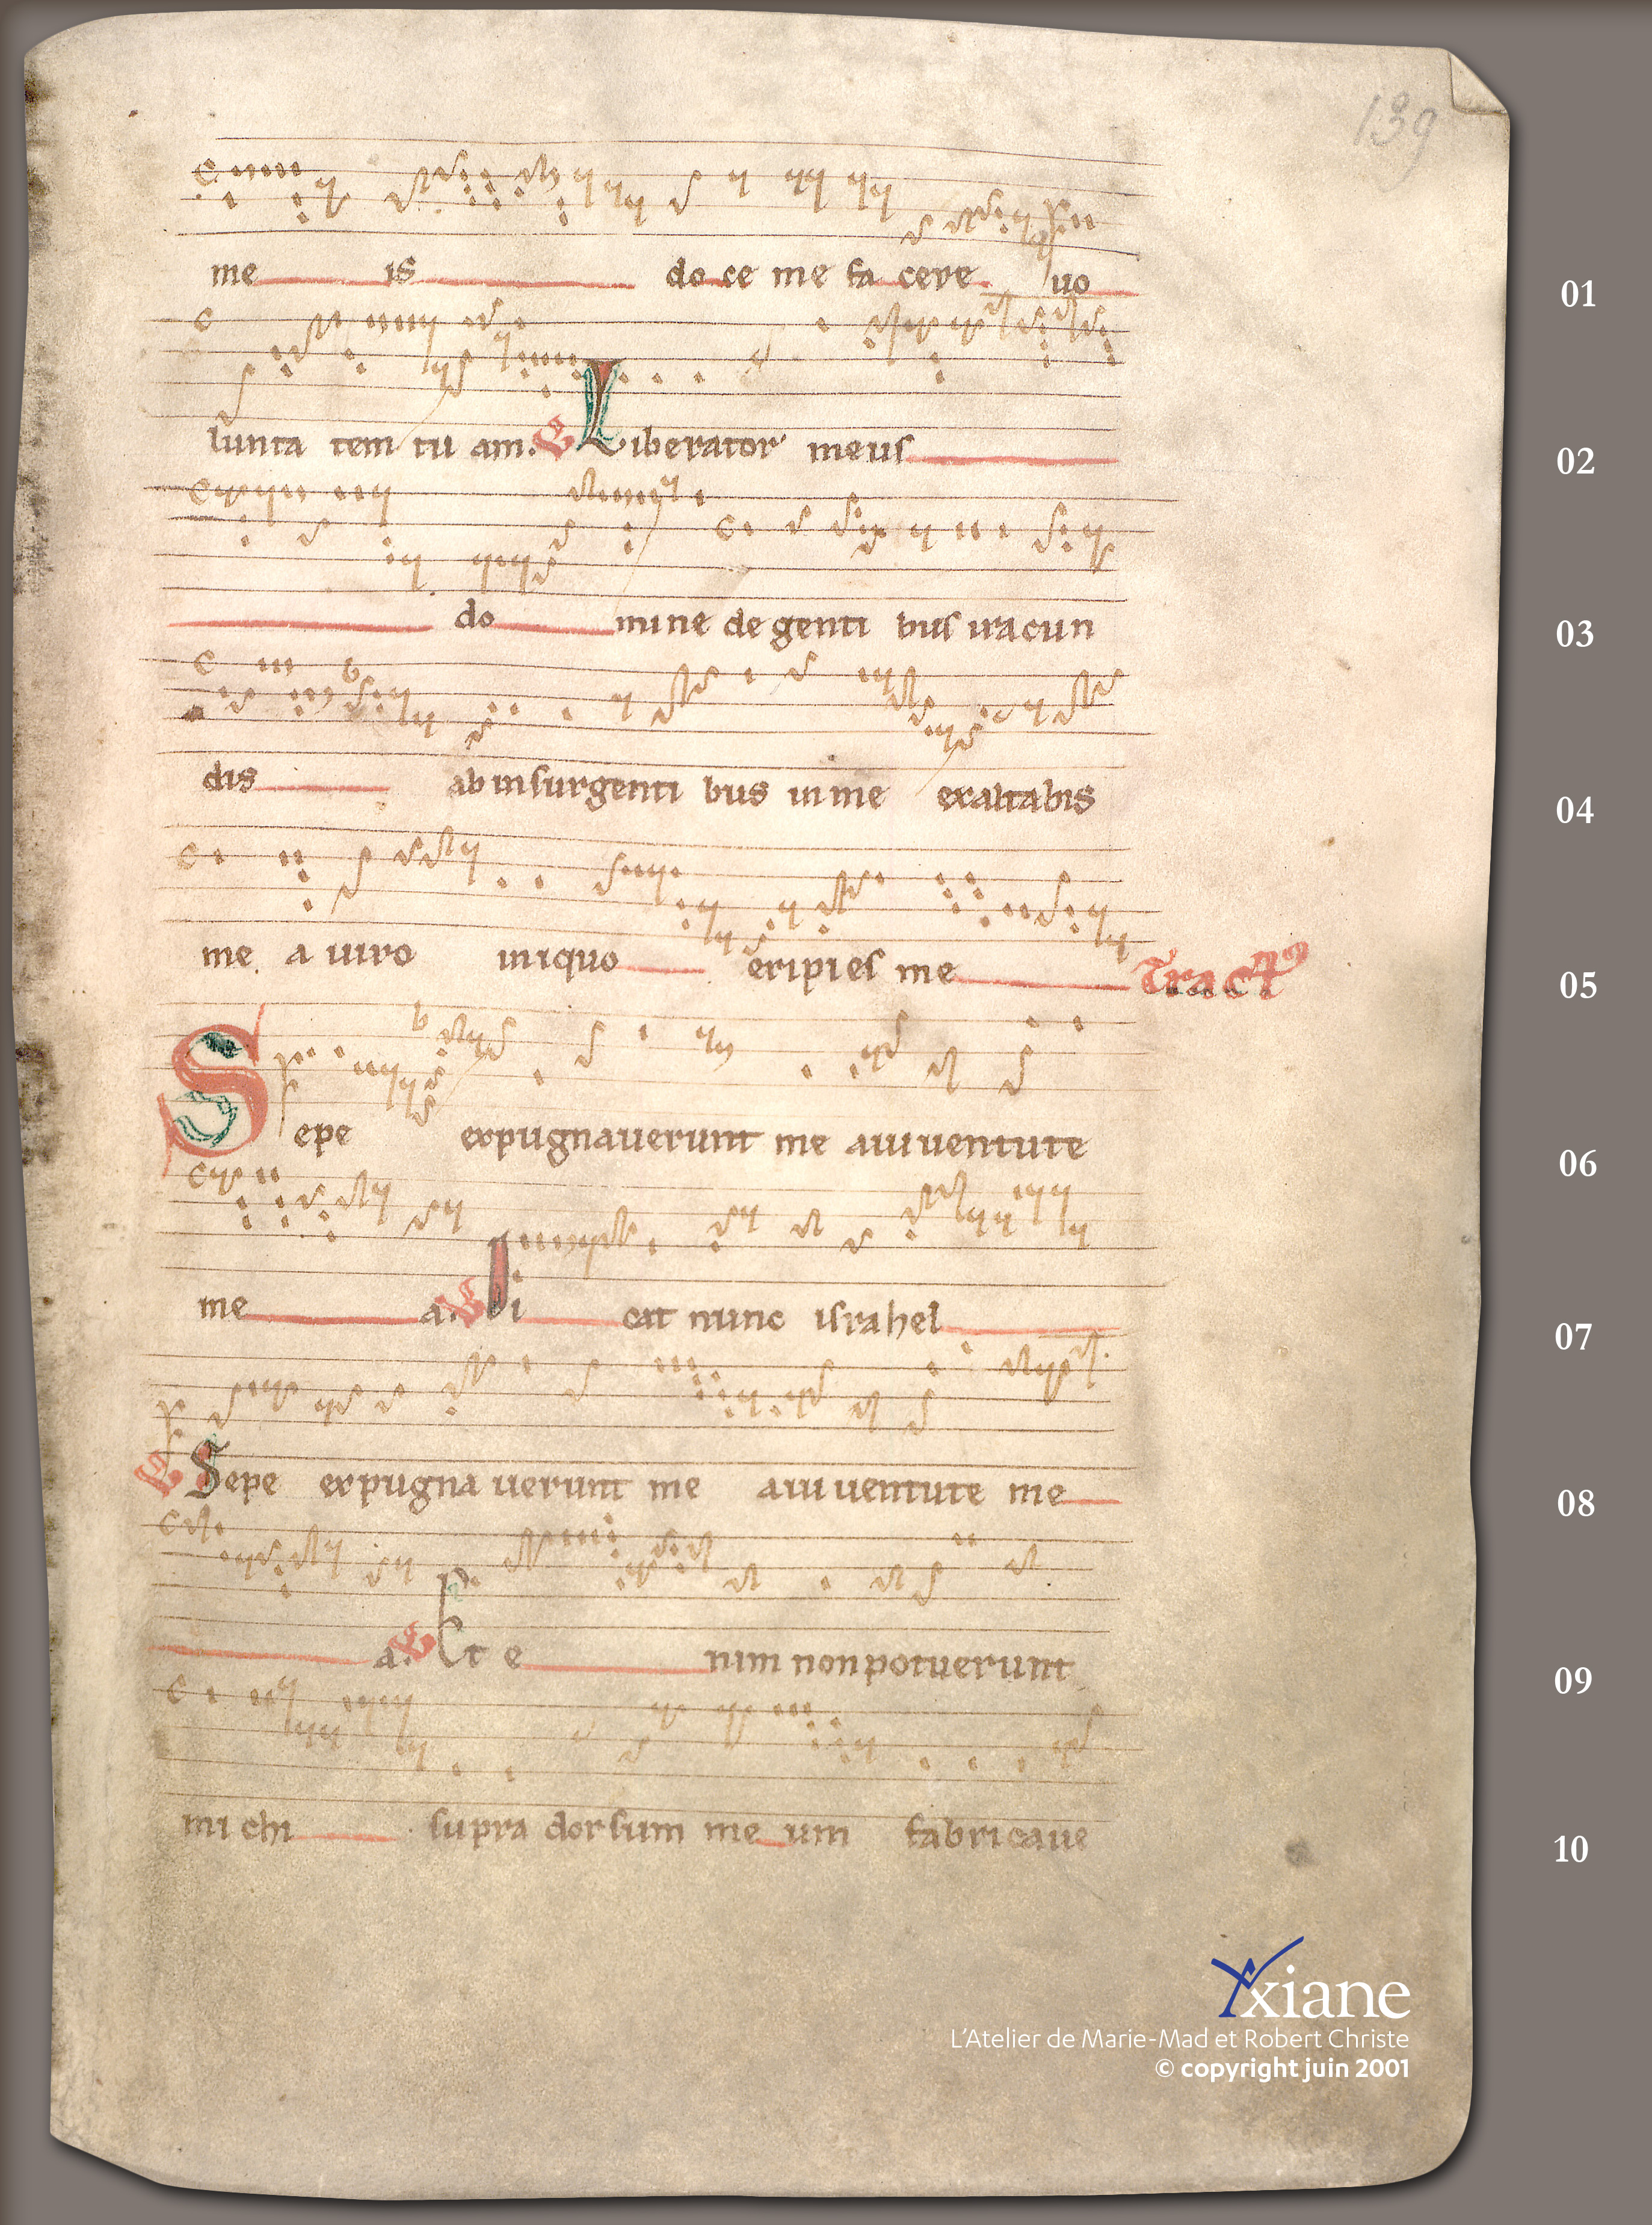 139
me is do ce me fa cere uo 01
lunta tem tu am. ℣ Liberator meus 02
do mine de genti bus iracun 03
dis ab insurgenti bus in me exaltabis 04
me a uiro iniquo eripies me Tractꝰ 05
Sepe expugnauerunt me a iuuentute 06
me a. ℣ Di cat nunc israhel 07
℣ Sepe expugna uerunt me a iuuentute me 08
a. ℣ Et e nim non potuerunt 09
mi chi supra dorsum me um fabricaue 10
Yxiane
L'Atelier de Marie-Mad et Robert Christe
© copyright juin 2001